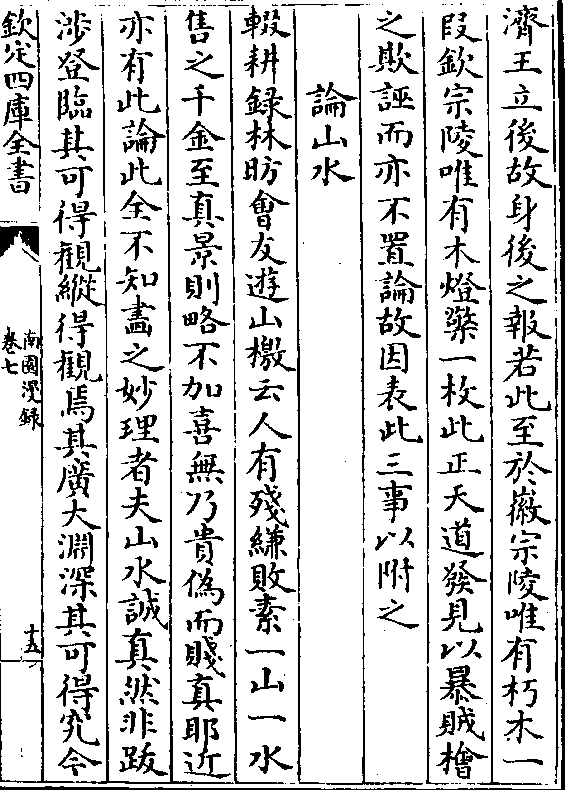 濟王立後故身後之報若此至於徽宗陵唯有朽木一
段欽宗陵唯有木燈檠一枚此正天道發見以暴賊檜
之欺誣而亦不置論故因表此三事以附之
論山水
輟耕録林昉會友遊山檄云人有殘縑敗素一山一水
售之千金至真景則略不加喜無乃貴偽而賤真耶近
亦有此論此全不知畵之妙理者夫山水誠真然非跋
渉登臨其可得觀縱得觀焉其廣大淵深其可得究今
欽定四庫全書
南園漫録
卷七
十五